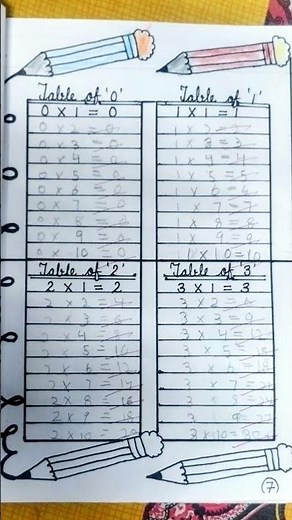 Table of '0'
0 x 1 = 0
0 x 2 = 0
0 x 3 = 0
0 x 4 = 0
0 x 5 = 0
0 x 6 = 0
0 x 7 = 0
0 x 8 = 0
0 x 9 = 0
0 x 10 = 0
Table of '1'
1 x 1 = 1
1 x 2 = 2
1 x 3 = 3
1 x 4 = 4
1 x 5 = 5
1 x 6 = 6
1 x 7 = 7
1 x 8 = 8
1 x 9 = 9
1 x 10 = 10
Table of '2'
2 x 1 = 2
2 x 2 = 4
2 x 3 = 6
2 x 4 = 8
2 x 5 = 10
2 x 6 = 12
2 x 7 = 14
2 x 8 = 16
2 x 9 = 18
2 x 10 = 20
Table of '3'
3 x 1 = 3
3 x 2 = 6
3 x 3 = 9
3 x 4 = 12
3 x 5 = 15
3 x 6 = 18
3 x 7 = 21
3 x 8 = 24
3 x 9 = 27
3 x 10 = 30
(7)